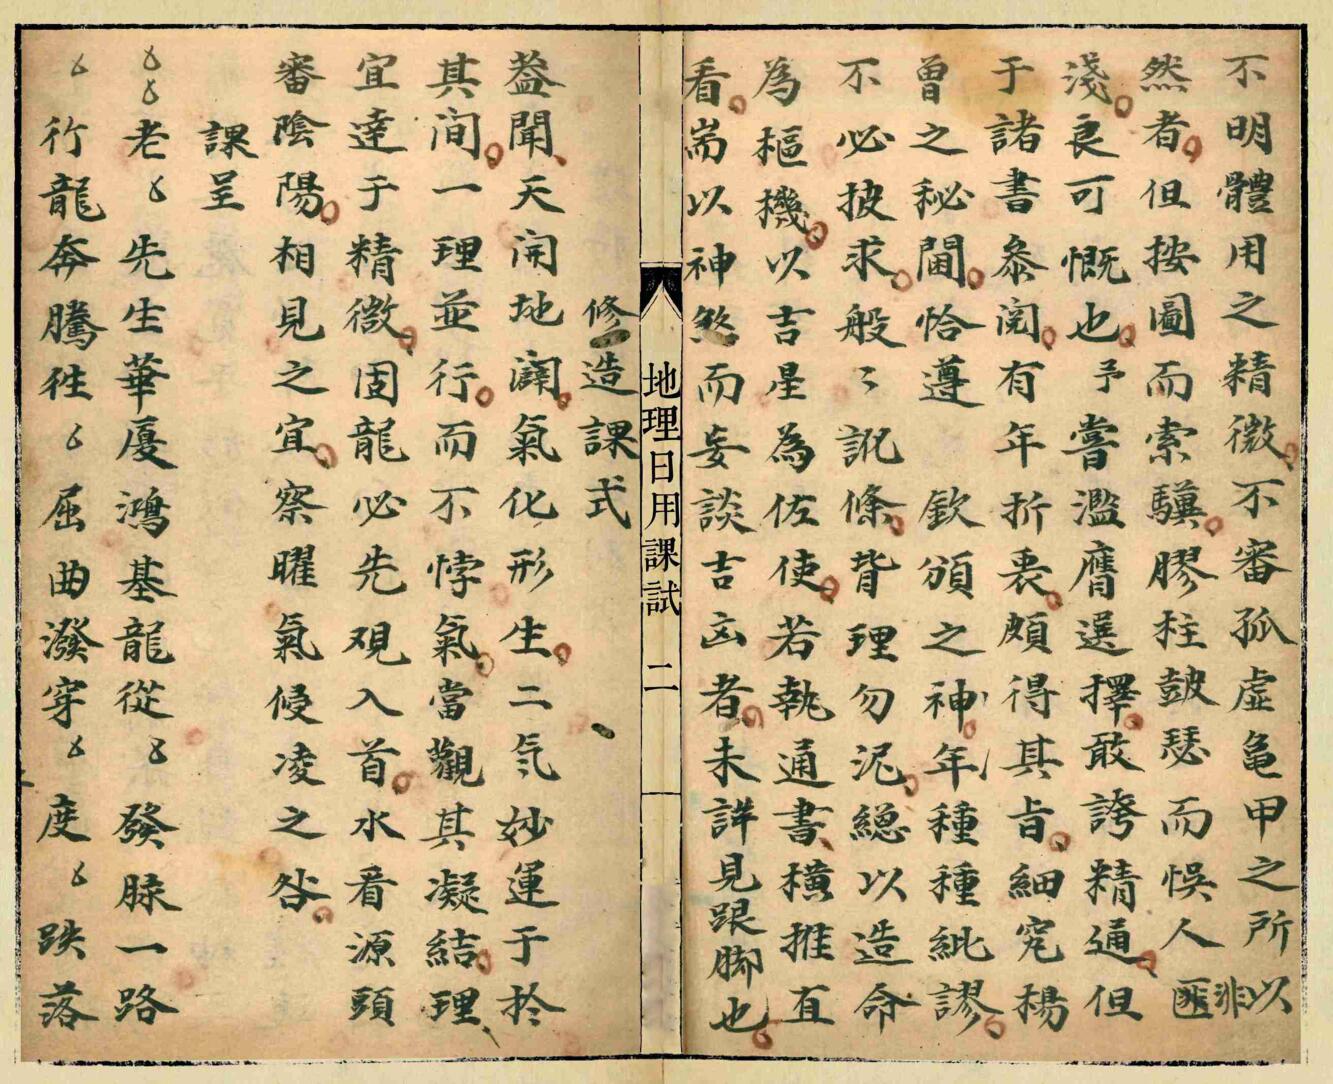 不明體用之精微不審孤虛龜甲之所以
然者但按圖而索驥膠柱皷瑟而悞人匪非
淺良可慨也予嘗濫膺選擇敢誇精通但
于諸書叅閱有年折衷頗得其旨細究楊
曾之秘閫恰遵　欽頒之神年種種紕謬
不必披求般〻訛條背理勿泥總以造命
為樞機以吉星為佐使若執通書橫推直
看耑以神煞而妄談吉凶者未詳見跟脚也
地理日用課試　二
修造課式
蓋聞天開地闢氣化形生二氣妙運于於
其间一理並行而不悖氣當觀其凝結理
宜達于精微固龍必先观入首水看源頭
審陰陽相見之宜察曜氣侵凌之咎
課呈
〻〻老〻先生華廈鴻基龍從〻發脉一路
〻行龍奔騰徃〻屈曲潑穿〻度〻跌落